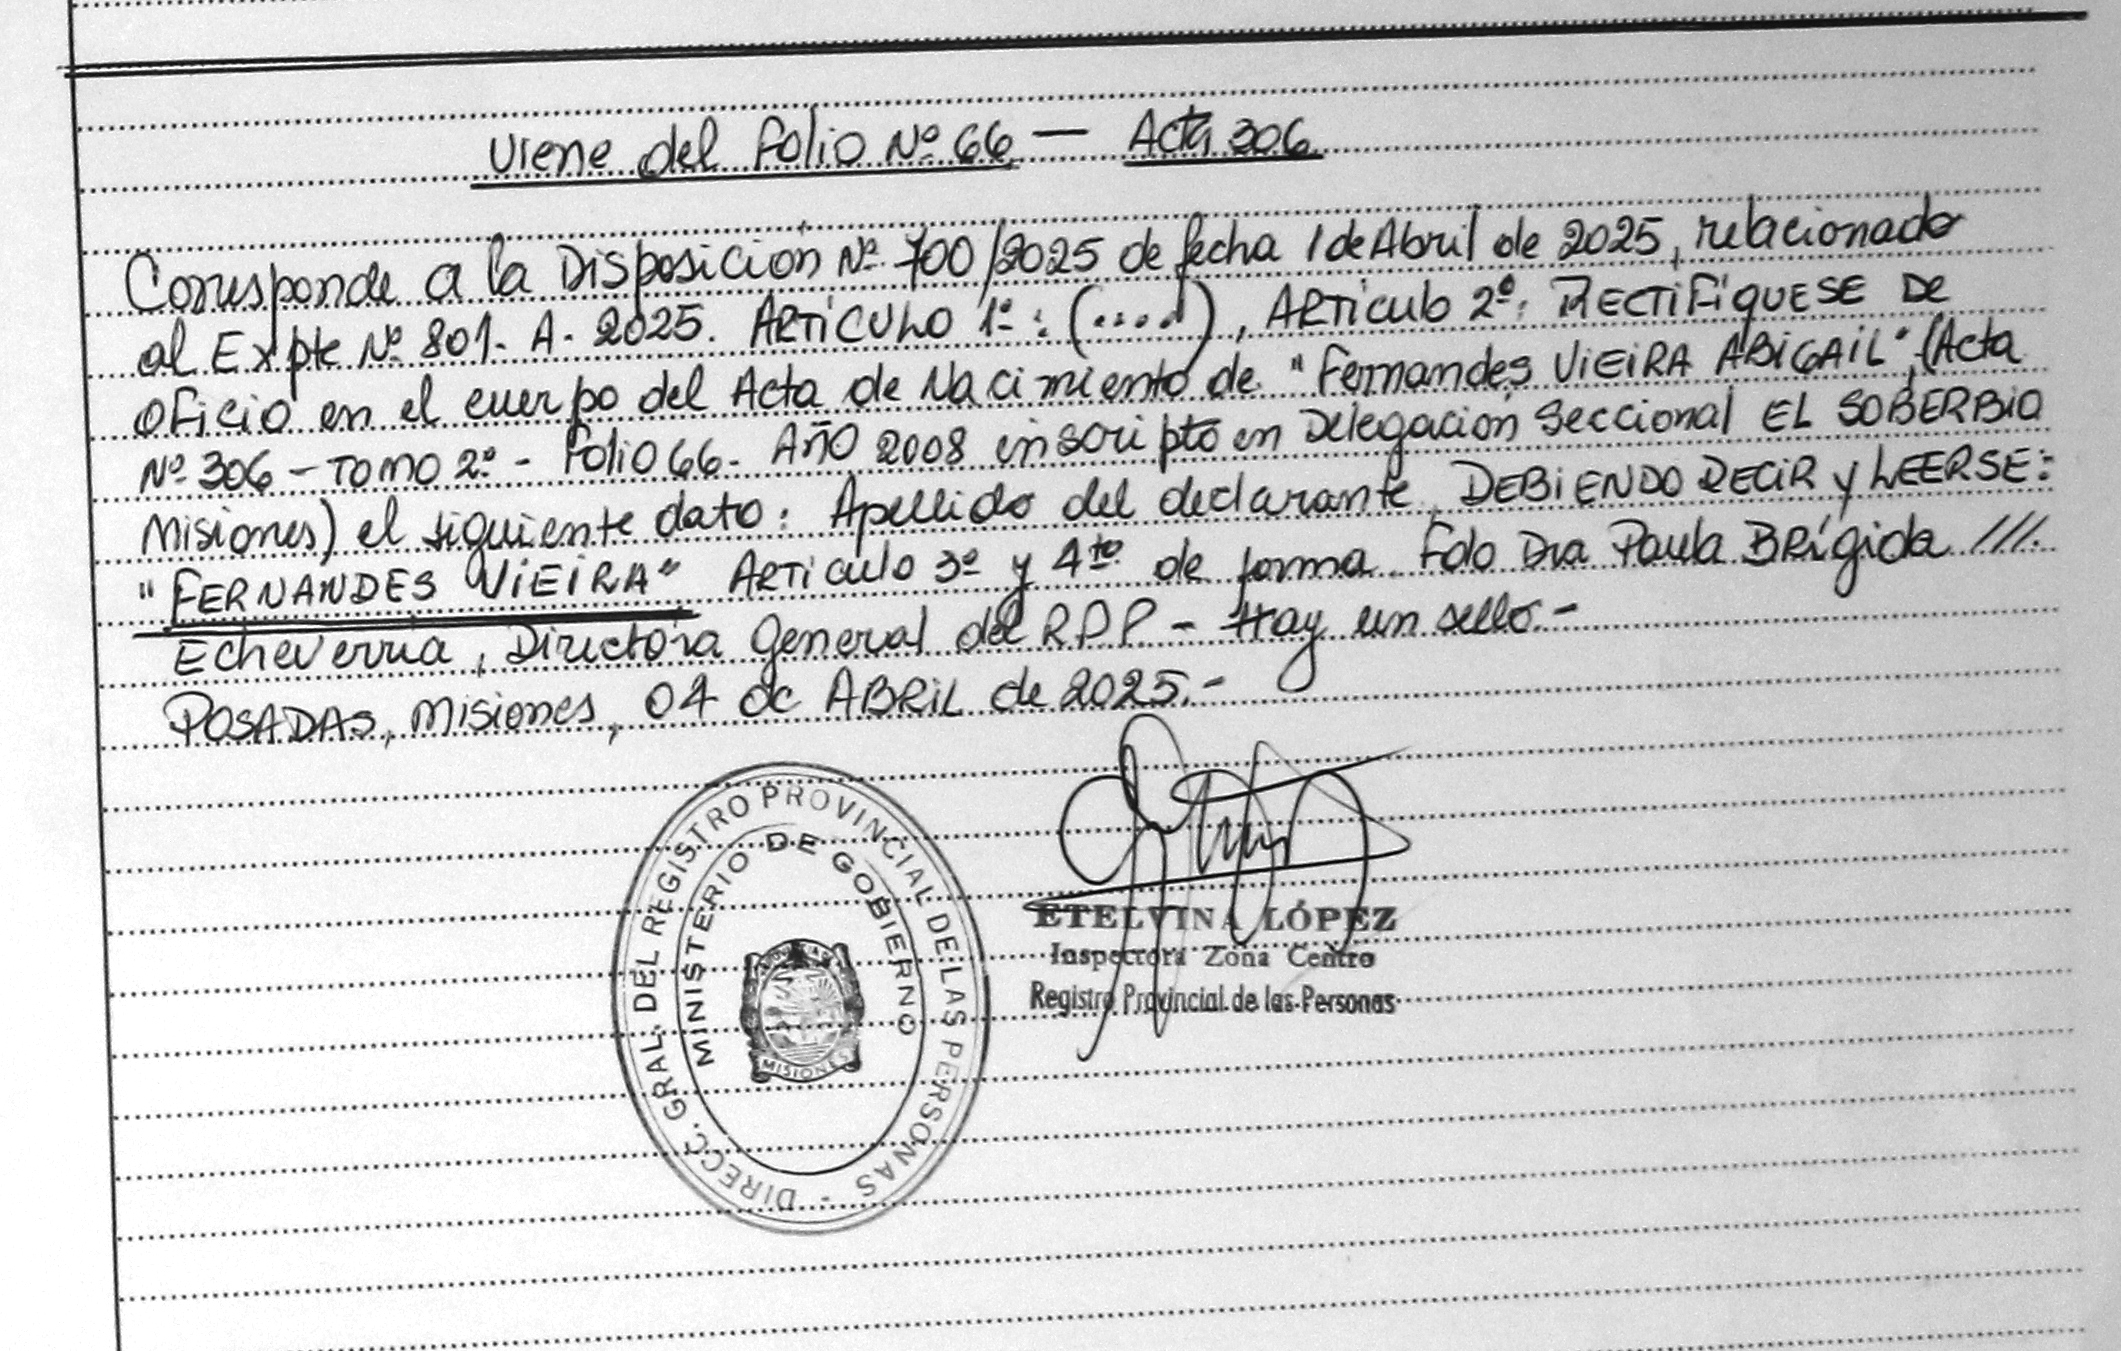 Viene del Folio Nº 66 — Acta 306
Corresponde a la Disposición Nº 700/2025 de fecha 1 de Abril de 2025, relacionado
al Expte Nº 801. A. 2025. ARTÍCULO 1º: (....), ARTICULO 2º: RECTIFÍQUESE DE
OFICIO en el cuerpo del Acta de Nacimiento de "Fernandes VIEIRA ABIGAIL", (Acta
Nº 306 - TOMO 2º - Folio 66 - AÑO 2008 inscripto en Delegación Seccional EL SOBERBIO
Misiones) el siguiente dato: Apellido del declarante, DEBIENDO DECIR y LEERSE:
"FERNANDES VIEIRA" ARTICULO 3º y 4to de forma. Fdo Dra Paula BRÍGIDA ///.
Echeverria, Directora General del RPP - Hay un sello.-
POSADAS, Misiones, 04 de ABRIL de 2025.-
DIRECC. GRAL. DEL REGISTRO PROVINCIAL DE LAS PERSONAS -
MINISTERIO DE GOBIERNO
MISIONES
ETELVINA LÓPEZ
Inspectora Zona Centro
Registro Provincial de las Personas